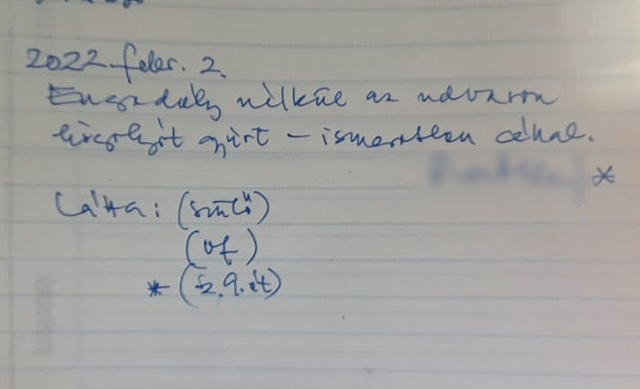 2022. febr. 2.
Engedély nélkül az udvaron
gyűrt – ismeretlen céllal.
*
Látta: (szülő)
(of)
* (sz. g. ét)